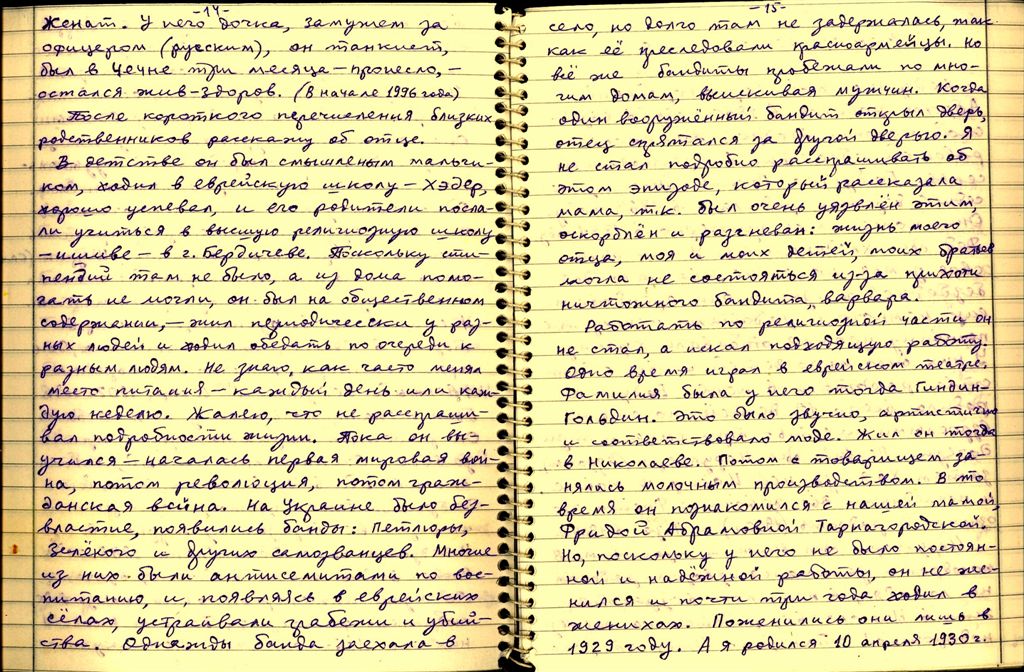 -14-
женат. У него дочка, замужем за
офицером (русским), он танкист,
был в Чечне три месяца – пронесло, –
остался жив-здоров. (В начале 1996 года)
После короткого перечисления близких
родственников расскажу об отце.
В детстве он был смышленым мальчи-
ком, ходил в еврейскую школу – хэдер,
хорошо успевал, и его родители посла-
ли учиться в высшую религиозную школу
– ишиве – в г. Бердичеве. Поскольку сти-
пендий там не было, а из дома помо-
гать не могли, он был на общественном
содержании, – жил периодически у раз-
ных людей и ходил обедать по очереди к
разным людям. Не знаю, как часто менял
место питания – каждый день или каж-
дую неделю. Жалею, что не расспраши-
вал подробности жизни. Пока он вы-
учился – началась первая мировая вой-
на, потом революция, потом граж-
данская война. На Украине было без-
властие, появились банды: Петлюры,
Зелёного и других самозванцев. Многие
из них были антисемитами по вос-
питанию, и, появляясь в еврейских
сёлах, устраивали грабежи и убий-
ства. Однажды банда заехала в
-15-
село, но долго там не задержалась, так
как её преследовали красноармейцы. Но
всё же бандиты пробежали по мно-
гим домам, выискивая мужчин. Когда
один вооружённый бандит открыл дверь,
отец спрятался за другой дверью. Я
не стал подробно расспрашивать об
этом эпизоде, который рассказала
мама, т.к. был очень уязвлён этим,
оскорблён и разгневан: жизнь моего
отца, моя и моих детей, моих братьев
могла не состояться из-за прихоти
ничтожного бандита, варвара.
Работать по религиозной части он
не стал, а искал подходящую работу.
Одно время играл в еврейском театре.
Фамилия была у него тогда Гиндин-
Гольдин. Это было звучно, артистично
и соответствовало моде. Жил он тогда
в Николаеве. Потом с товарищем за-
нялась молочным производством. В то
время он познакомился с нашей мамой,
Фридой Абрамовной Тарнагородской.
Но, поскольку у него не было постоян-
ной и надёжной работы, он не же-
нился и почти три года ходил в
женихах. Поженились они лишь в
1929 году. А я родился 10 апреля 1930 г.